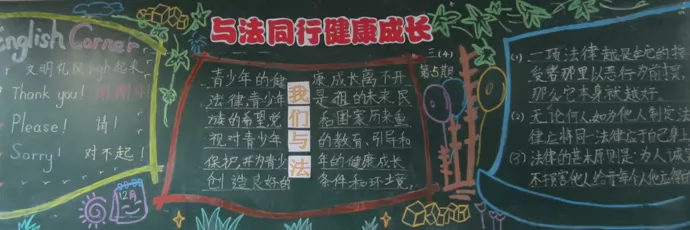 与法同行健康成长
English Corner
文明礼仪high起来
Thank you!
Please! 请!
Sorry! 对不起!
12月
三(4)
第5期
我们与法
青少年的健康成长离不开
法律,青少年是祖的未来,民
族的希望,党和国家历来重
视对青少年的教育、引导和
保护,并为青少年的健康成长
创造良好的条件和环境。
(1) 一项法律越是在它的接
受者那里以恶行为前提,
那么它本身就越好.
(2) 无论何人,如为他人制定法
律,应将同一法律应于自己身上
(3) 法律的基本原则是:为人诚实
不损害他人给予每个人他应得的